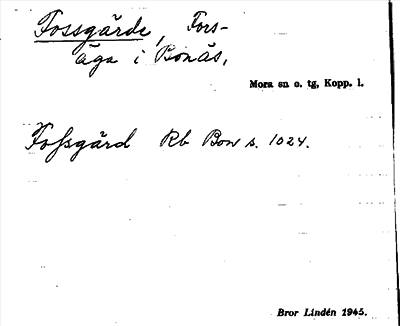 Fossgärde, Fors-
äga i Bonäs,
Mora sn o. tg, Kopp. l.
Fossgärd Rb Bow s. 1024.
Bror Lindén 1945.